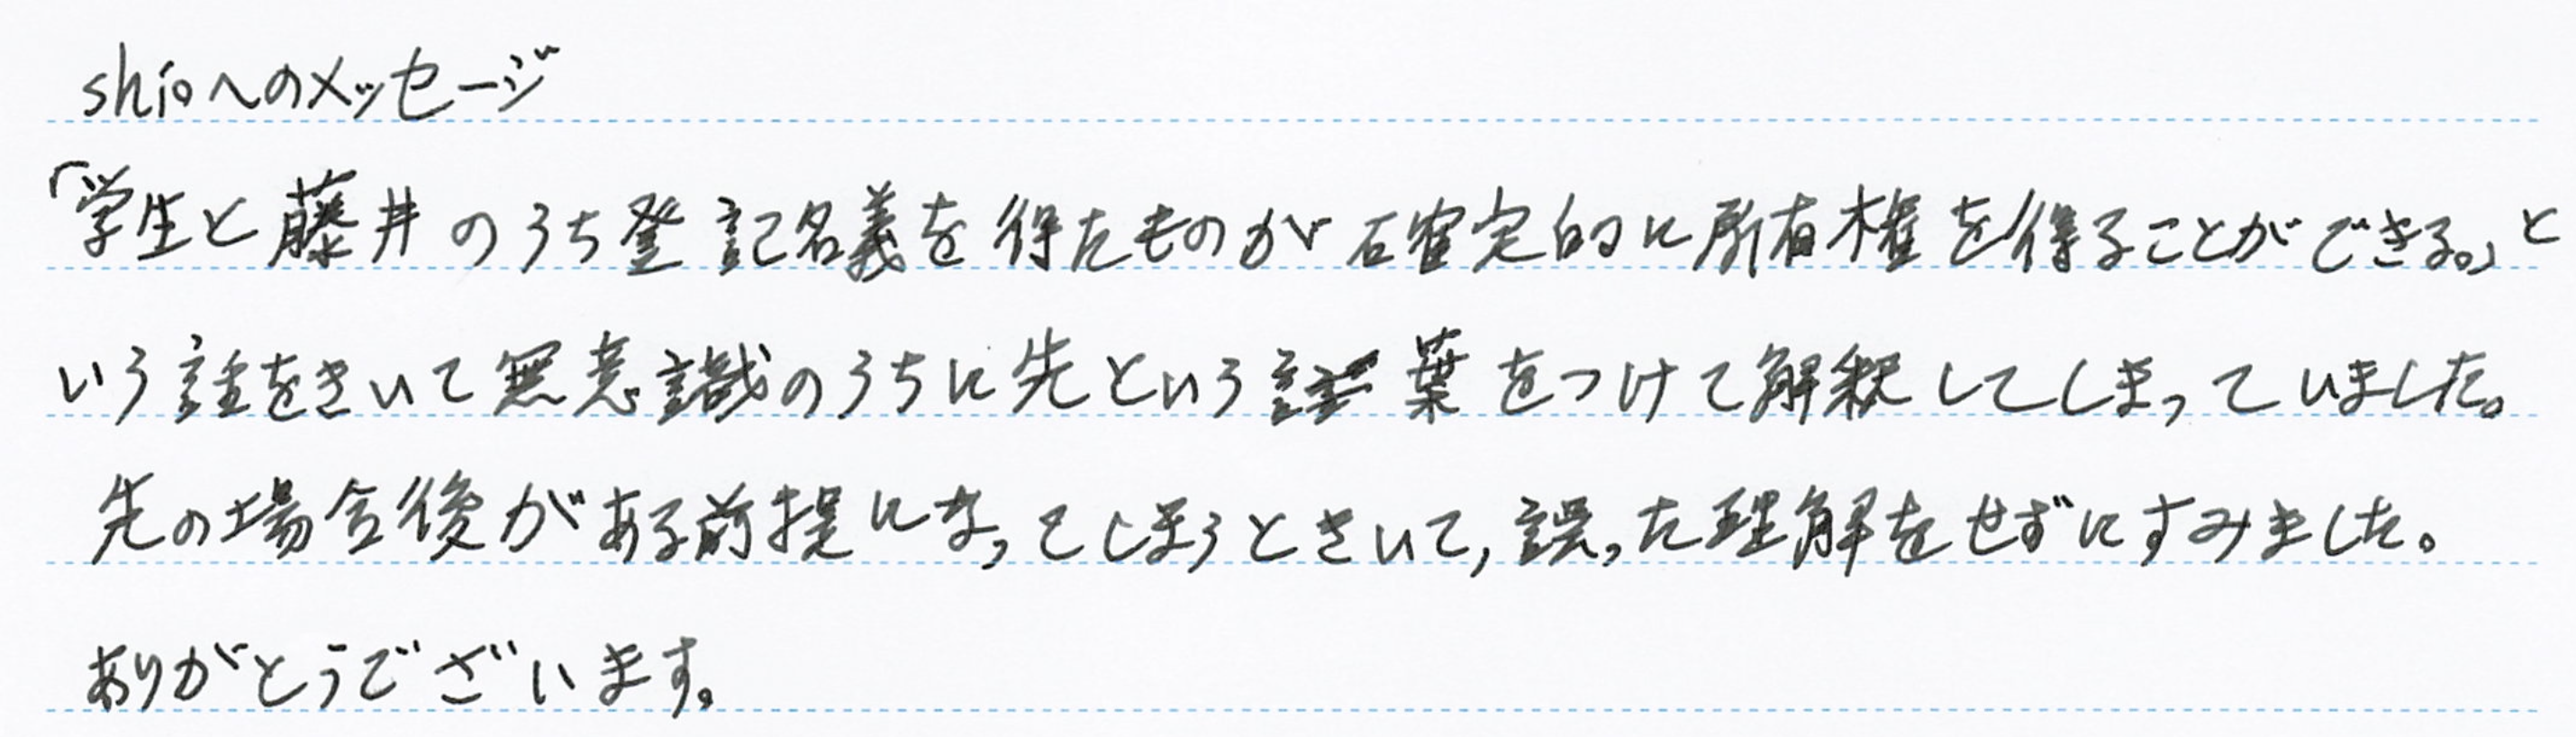 shioへのメッセージ
「学生と藤井のうち登記名義を得たものが確定的に所有権を得ることができる。」と
いう話をきいて無意識のうちに先という言葉をつけて解釈してしまっていました。
先の場合後がある前提になってしまうときいて,誤った理解をせずにすみました。
ありがとうございます。